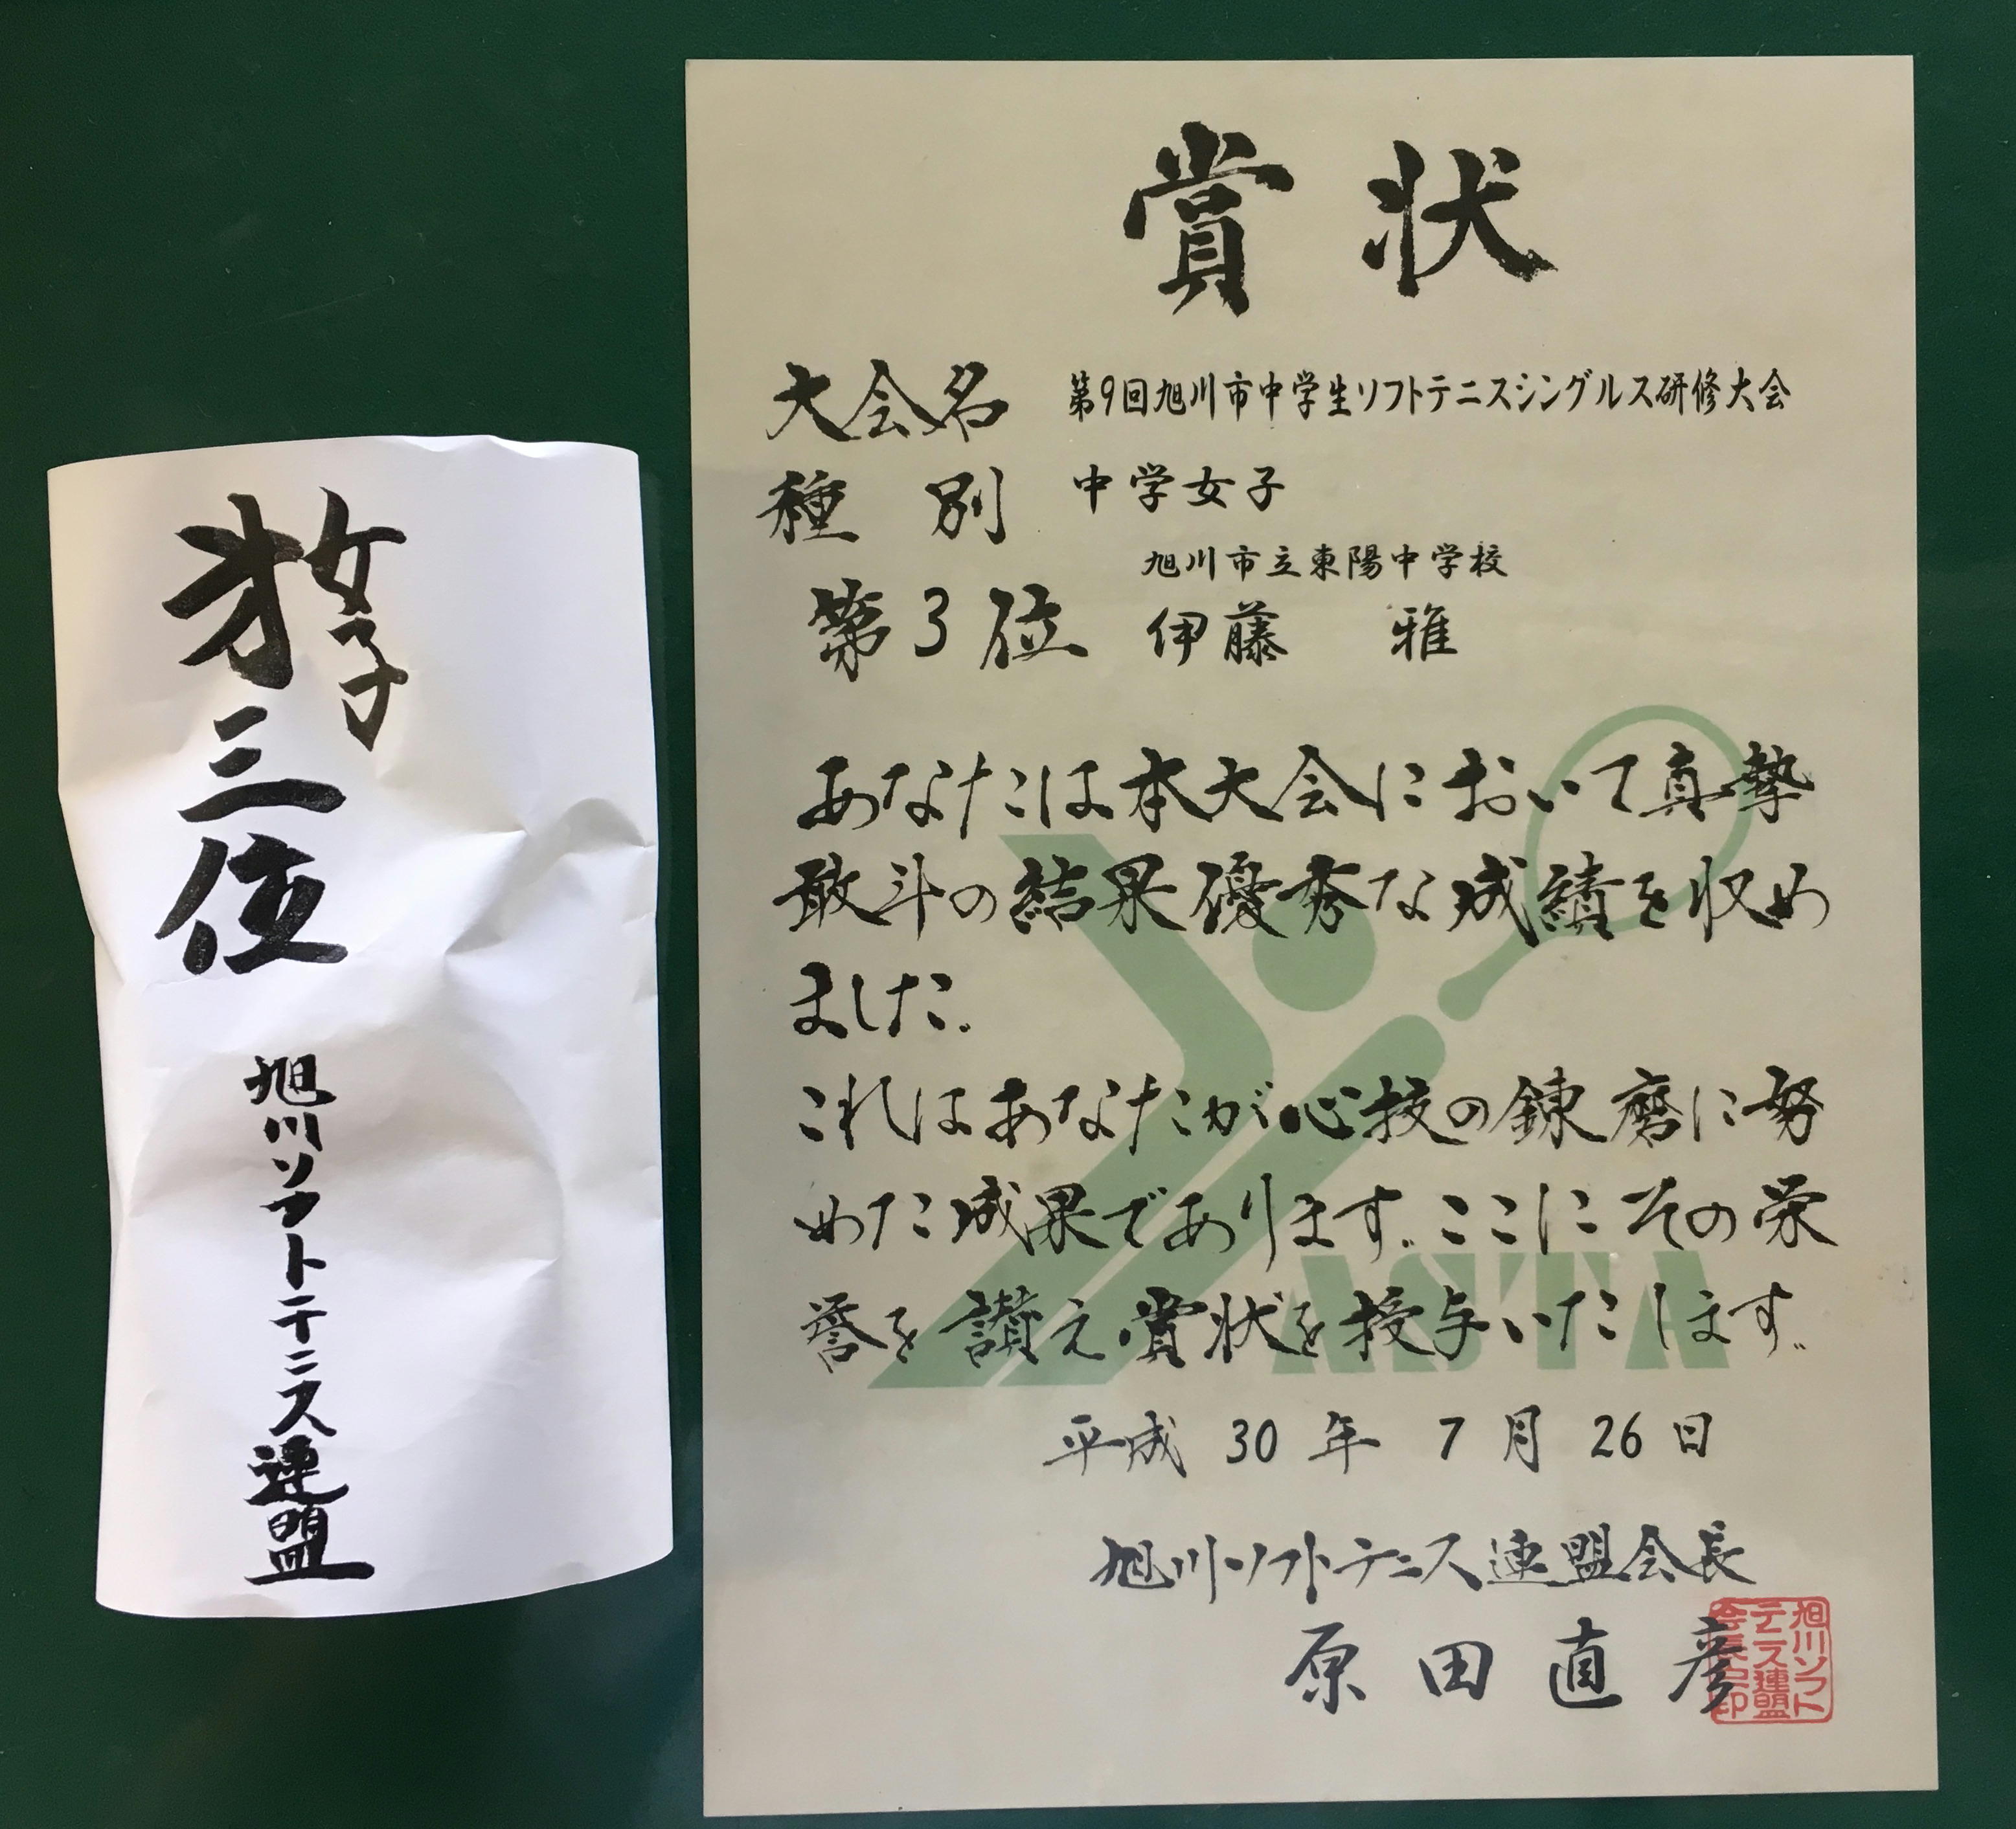 女子
才三位
旭川ソフトテニス連盟
賞状
大会名 第9回旭川市中学生ソフトテニスシングルス研修大会
種別 中学女子
旭川市立東陽中学校
第3位 伊藤 雅
あなたは本大会において真摯
敢斗の結果優秀な成績を収め
ました。
これはあなたが心技の錬磨に努
めた成果であります。ここにその栄
誉を讃え賞状を授与いたします。
ASTA
平成 30 年 7 月 26 日
旭川ソフトテニス連盟会長
原田直彦
旭川ソフト
テニス連盟
会長之印